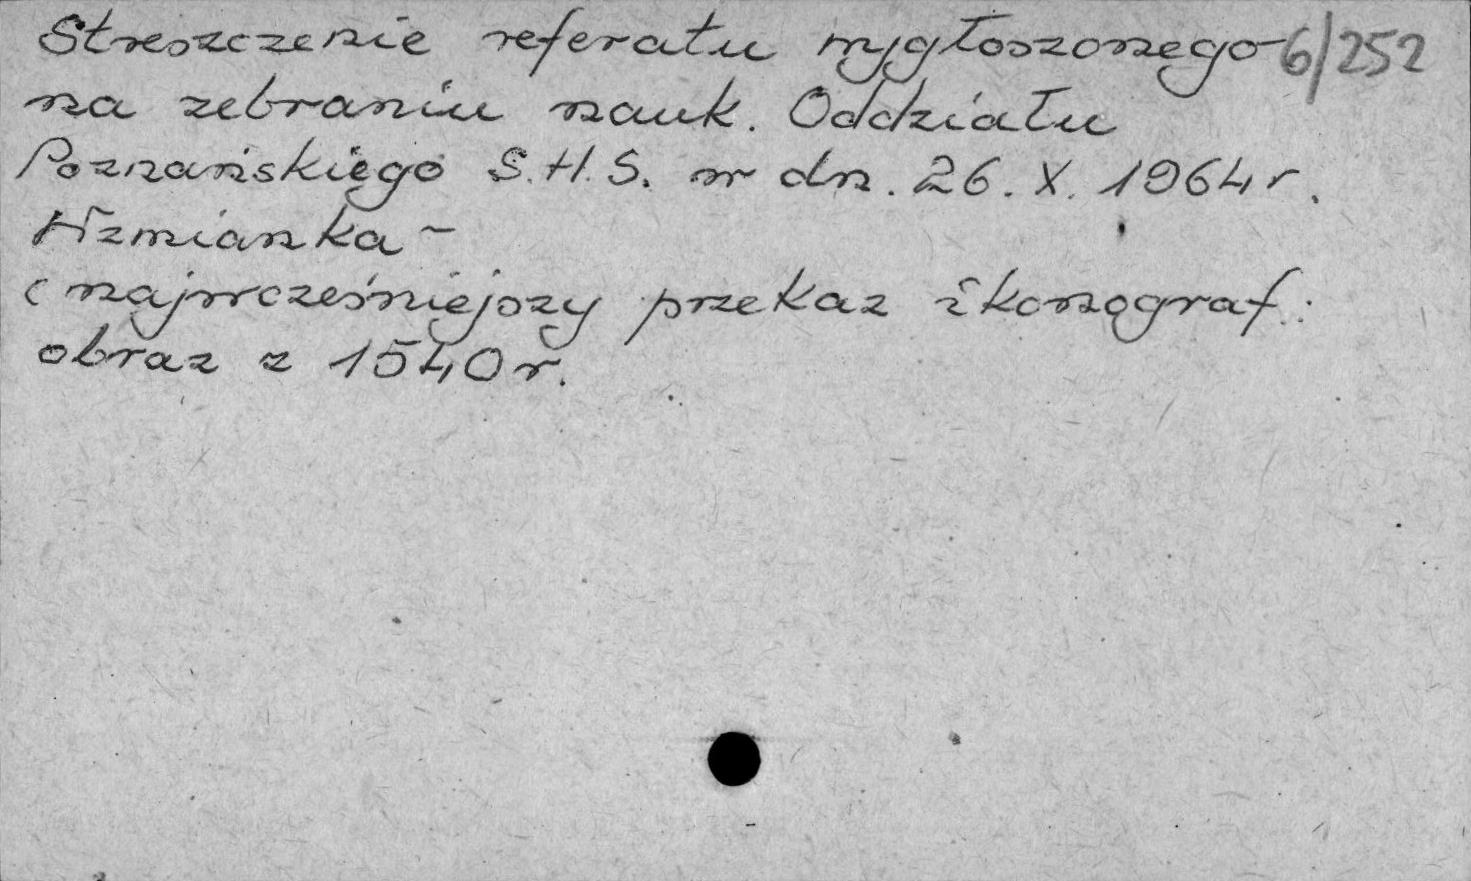 Streszczenie referatu wygłoszonego 6/252
na zebraniu nauk. Oddziału
Poznańskiego S.H.S. w dn. 26.X.1964 r.
Wzmianka -
(najwcześniejszy przekaz ikonograf.:
obraz z 1540 r.